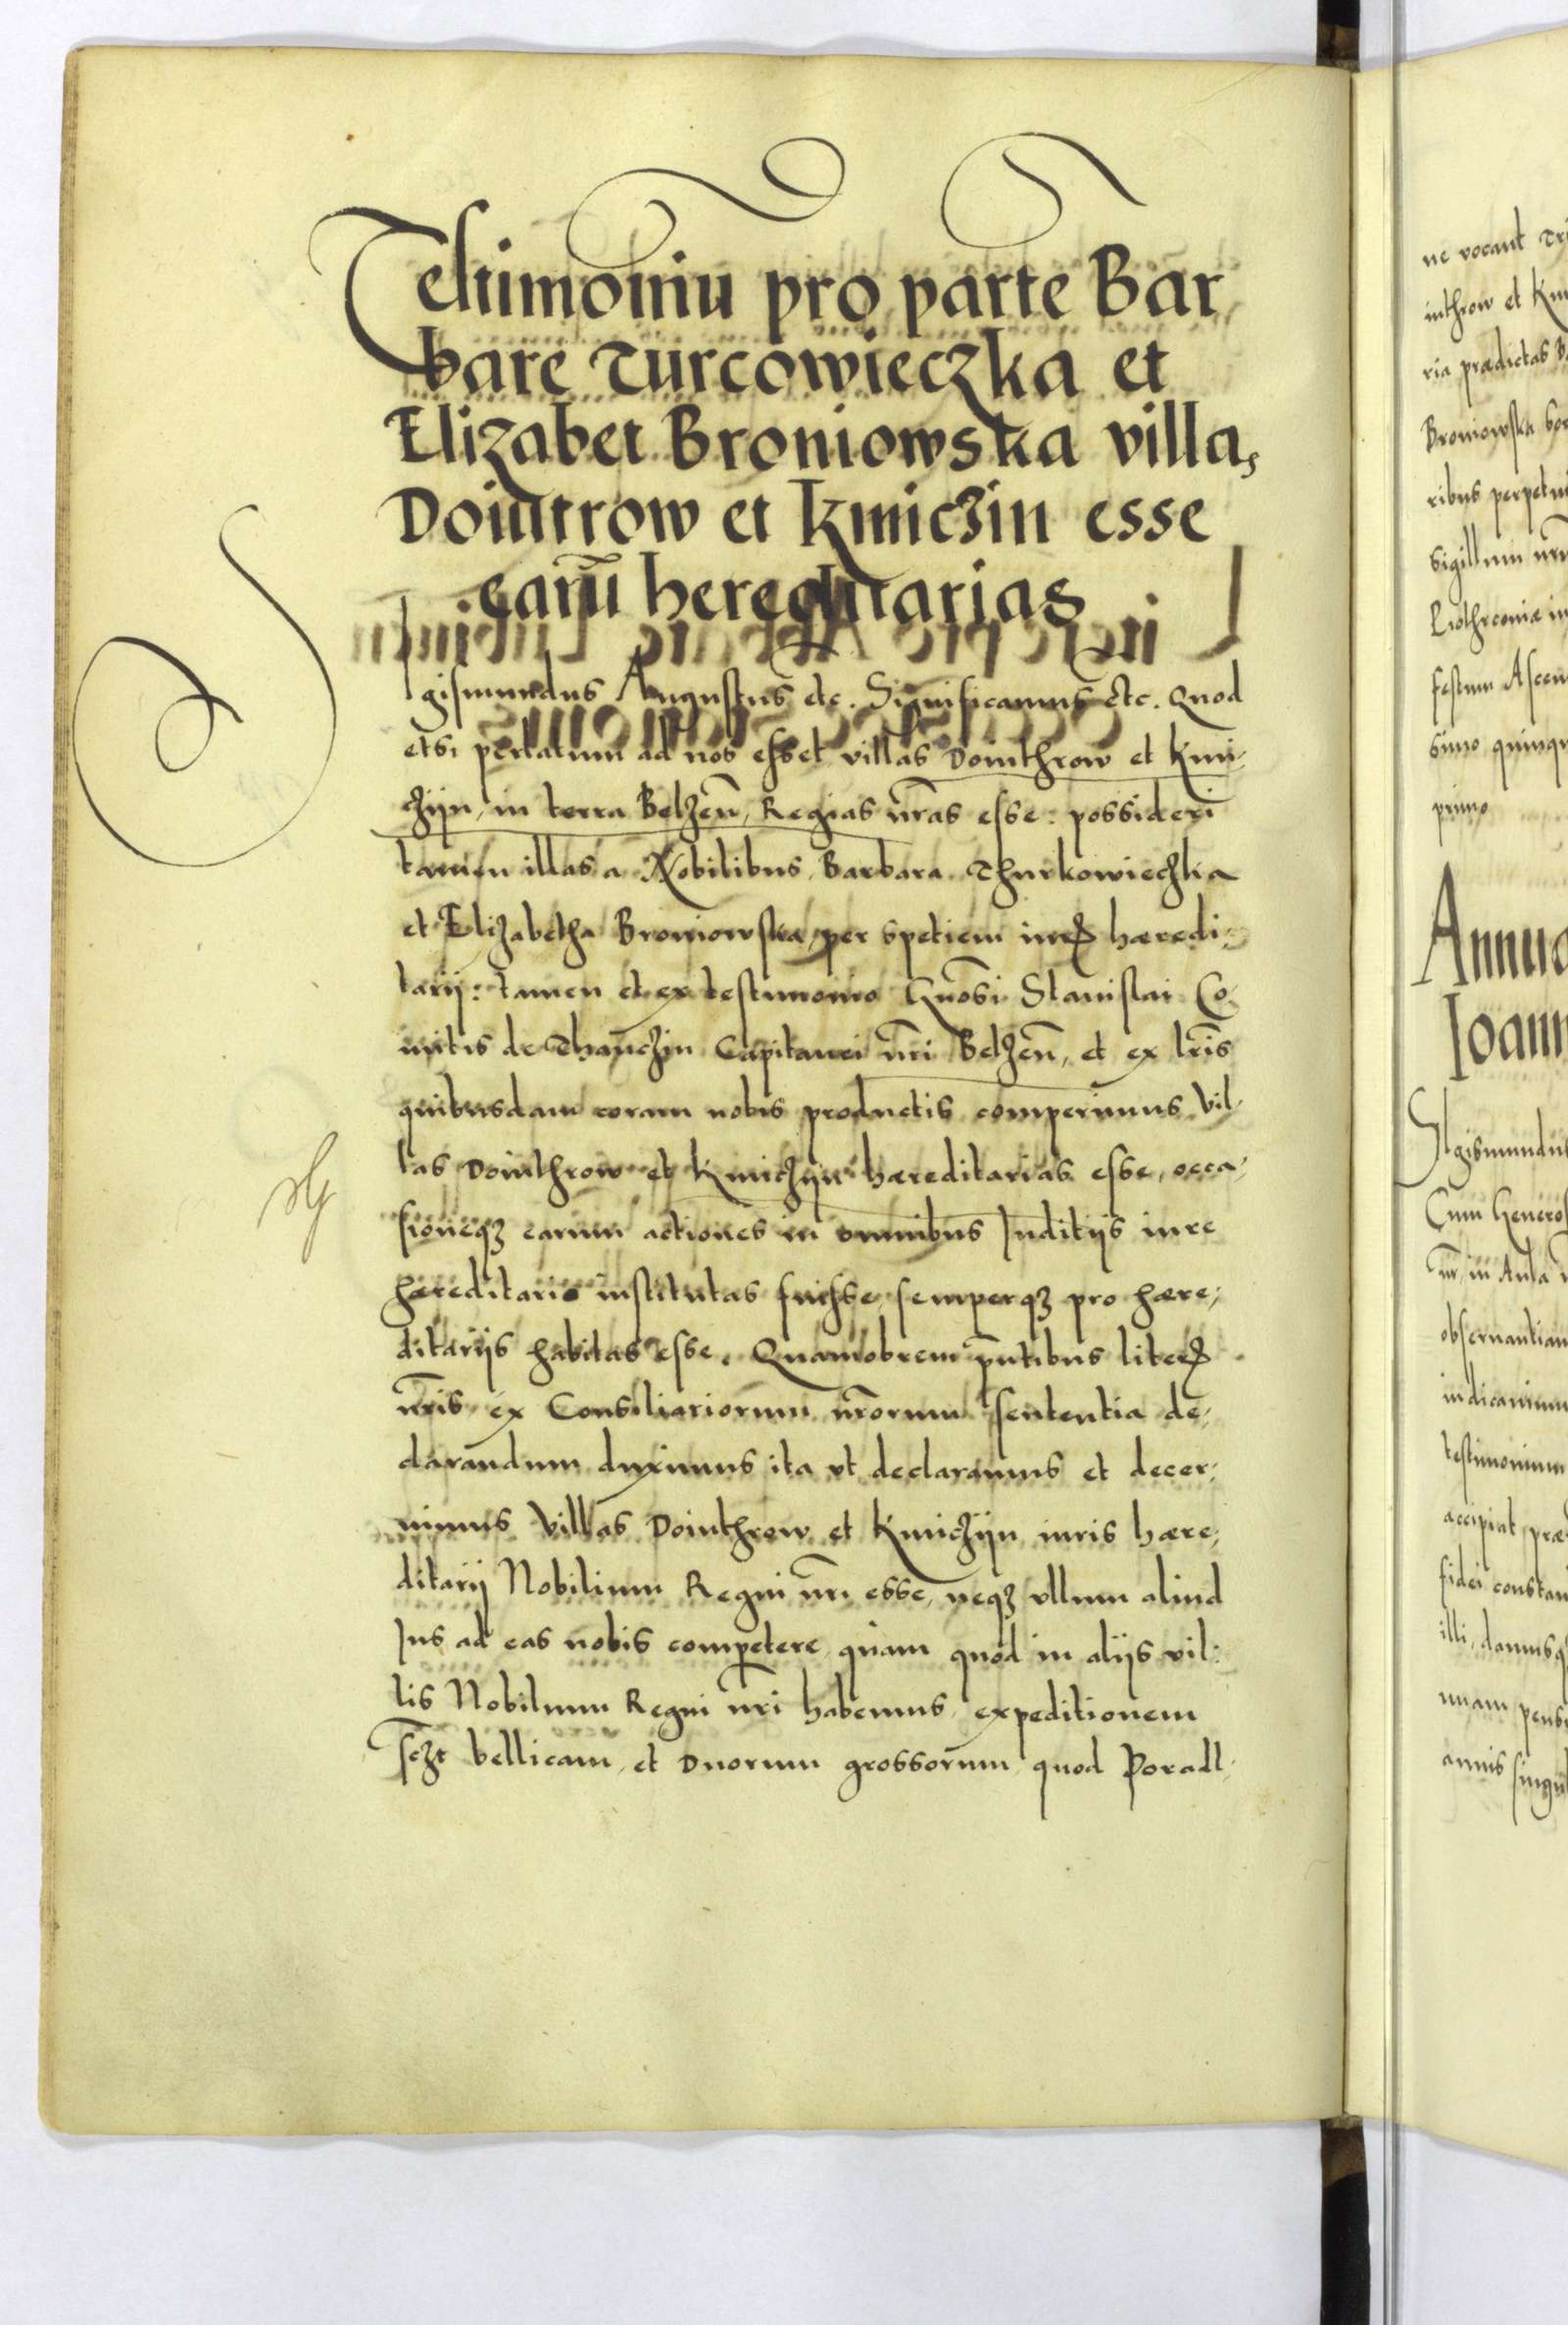 Testimoniu pro parte Bar
bare Turcowieczka et
Elizabet Broniowska villa,
Dointrow et Kmiczin esse
earũ hereditarias
Sigismundus Augustus etc. Significamus etc. Quod
etsi perlatum ad nos esset villas Dointhrow et Kmi-
czijn, in terra Belzen̄, Regias nr̄as esse: possideri
tamen illas a Nobilibus Barbara Thurkowieczka
et Elizabetha Broniowska per spetiem iurꝭ hæredi-
tarij: tamen et ex testimonio Gn̄osi Stanislai Co-
mitis de Thanczin Capitanei nr̄i Belzen̄, et ex lr̄is
quibusdam coram nobis productis comperimus Vil-
las Dointhrow et Kmiczijn hæreditarias esse, occa-
sioneqꝫ earum actiones in omnibus Juditijs iure
hæreditario institutas fuisse, semperqꝫ pro hære-
ditarijs habitas esse. Quamobrem p̄ntibus literꝭ
nr̄is, ex Consiliariorum nr̄orum sententia de-
clarandum duximus ita vt declaramus et decer-
nimus Villas Dointhrow et Kmiczijn iuris hære-
ditarij Nobilium Regni nr̄i esse, neqꝫ vllum aliud
Jus ad eas nobis competere, quam quod in alijs vil-
lis Nobilium Regni nr̄i habemus, expeditionem
sczt bellicam, et duorum grossorum, quod Poradl-
ne vocant
inthrow et
ria prædictas
Broniowska
ribus
sigillum
in
festum
simo
primo
Annua
Joann
Sigismundus
Cum
in Aula
obseruantiam
testimonium
accipiat
fidei
illi, damusq
annis